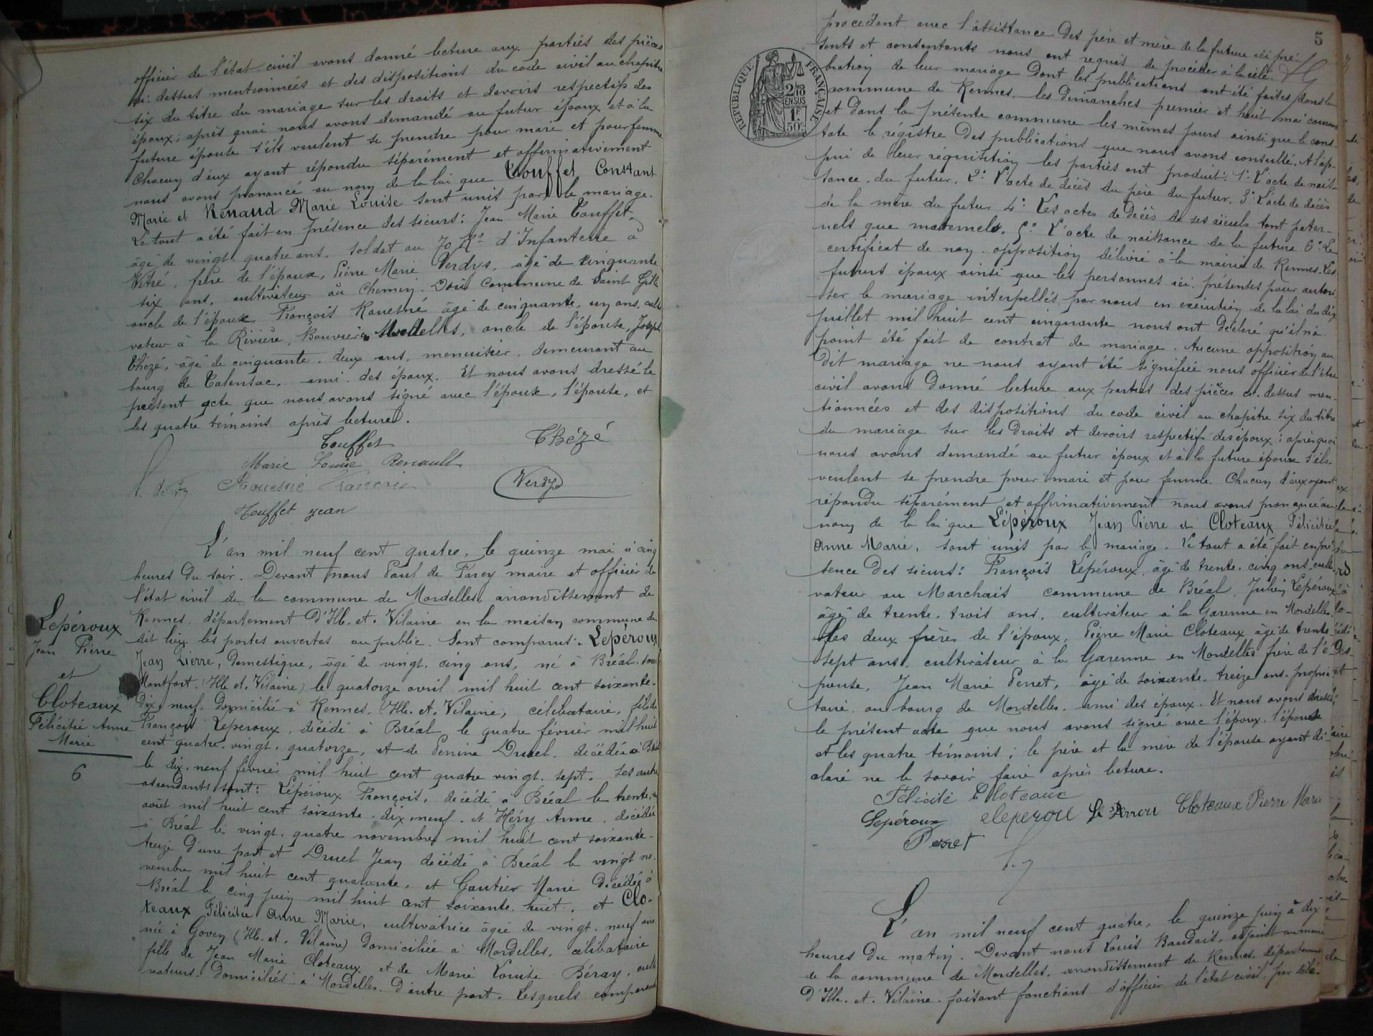 officier de l'état civil avons donné lecture aux parties des pièces
ci-dessus mentionnées et des dispositions du code civil au chapitre
six du titre du mariage sur les droits et devoirs respectifs des
époux; après quoi nous avons demandé au futur époux et à la
future épouse s'ils veulent se prendre pour mari et pour femme
chacun d'eux ayant répondu séparément et affirmativement
nous avons prononcé au nom de la loi que Touffet Constant
Marie et Renaud Marie Louise sont unis par le mariage.
Le tout a été fait en présence des sieurs: Jean Marie Touffet
âgé de vingt quatre ans, soldat au 70 Rt d'Infanterie à
Vitré, frère de l'époux, Pierre Marie Verdys, âgé de cinquante
six ans, cultivateur au Chemin Commune de Saint Gilles
oncle de l'époux François âgé de cinquante un ans, culti
vateur à la Rivière Mordelles, oncle de l'épouse, Joseph
Thézé, âgé de cinquante deux ans, menuisier, demeurant au
bourg de Talensac, ami des époux. Et nous avons dressé le
présent acte que nous avons signé avec l'époux, l'épouse, et
les quatre témoins après lecture.
Touffet Thézé
Marie Louise Renault
Verdys
Touffet Jean
L'an mil neuf cent quatre, le quinze mai à cinq
heures du soir. Devant nous Paul de Farcy maire et officier de
l'état civil de la commune de Mordelles arrondissement de
Rennes, département d'Ille-et-Vilaine en la maison commune du
dit lieu les portes ouvertes au public. Sont comparus: Lepéroux
Jean Pierre, Domestique, âgé de vingt cinq ans, né à Bréal sous
Montfort (Ille et Vilaine) le quatorze avril mil huit cent soixante-
dix-neuf, domicilié à Rennes, Ille-et-Vilaine, célibataire, fils de
François Lepéroux, décédé à Bréal le quatre février mil huit
cent quatre-vingt-quatorze, et de Perrine Druel, décédée à Bréal
le dix-neuf février mil huit cent quatre vingt sept. Les autres
ascendants sont: Lépéroux François, décédé à Bréal le trente
août mil huit cent soixante-dix-neuf et Héry Anne, décédée
à Bréal le vingt quatre novembre mil huit cent soixante-
treize d'une part et Druel Jean décédé à Bréal le vingt no
vembre mil huit cent quarante, et Gautier Marie décédée à
Bréal le cinq juin mil huit cent soixante-huit, et Clo-
teaux Félicité Anne Marie, cultivatrice âgée de vingt-neuf ans
née à Goven (Ille-et-Vilaine) domiciliée à Mordelles, célibataire
fille de Jean Marie Cloteaux et de Marie Louise Béray, culti
vateurs domiciliés à Mordelles. D'autre part. Lesquels comparants
Lepéroux
Jean Pierre
et
Cloteaux
Félicitée Anne
Marie
6
5
RÉPUBLIQUE FRANÇAISE
2/10 EN SUS
1F 50c
procedent avec l'assistance des père et mère de la future ici pré-
sents et consentants nous ont requis de procéder à la célé
bration de leur mariage dont les publications ont été faites dans la
commune de Rennes, les dimanches premier et huit mai courant
et dans la présente commune les mêmes jours ainsi que le cons
tate le registre des publications que nous avons consulté. A l'ap-
pui de leur réquisition les parties ont produit: 1° L'acte de nais-
sance du futur. 2° L'acte de décès du père du futur. 3° L'acte de décès
de la mère du futur 4° Les actes de décès de ses aïeuls tant pater-
nels que maternels, 5° L'acte de naissance de la future 6° Le
certificat de non-opposition délivré à la mairie de Rennes. Les
futurs époux ainsi que les personnes ici présentes pour autori
ser le mariage interpellés par nous en exécution de la loi du dix
juillet mil huit cent cinquante nous ont déclaré qu'il n'a
point été fait de contrat de mariage. Aucune opposition au
dit mariage ne nous ayant été signifiée nous officier de l'état
civil avons donné lecture aux parties des pièces ci-dessus men-
tionnées et des dispositions du code civil au chapitre six du titre
du mariage sur les droits et devoirs respectifs des époux: après quoi
nous avons demandé au futur époux et à la future épouse s'ils
veulent se prendre pour mari et pour femme chacun d'eux ayant
répondu séparément et affirmativement nous avons prononcé au
nom de la loi que Lépéroux Jean Pierre et Cloteaux Félicitée
Anne Marie, sont unis par le mariage. Le tout a été fait en pré
sence des sieurs: François Lepéroux, âgé de trente-cinq ans, culti
vateur au Marchais commune de Bréal, Julien Lépéroux
âgé de trente-trois ans, cultivateur à la Garenne en Mordelles
les deux frères de l'époux, Pierre Marie Cloteaux âgé de trente
sept ans, cultivateur à la Garenne en Mordelles frère de l'é
pouse, Jean Marie Perret, âgé de soixante-treize ans, proprié
taire au bourg de Mordelles, ami des époux. Et nous avons dressé
le présent acte que nous avons signé avec l'époux, l'épouse
et les quatre témoins; le père et la mère de l'épouse ayant dé
claré ne le savoir faire après lecture.
Félicité Cloteaux
Lepéroux Cloteaux Pierre Marie
Perret
L'an mil neuf cent quatre, le quinze juin à dix
heures du matin. Devant nous Louis Baudais, adjoint au maire
de la commune de Mordelles, arrondissement de Rennes, département
D'Ille-et-Vilaine, faisant fonctions d'officier de l'état civil par délé-